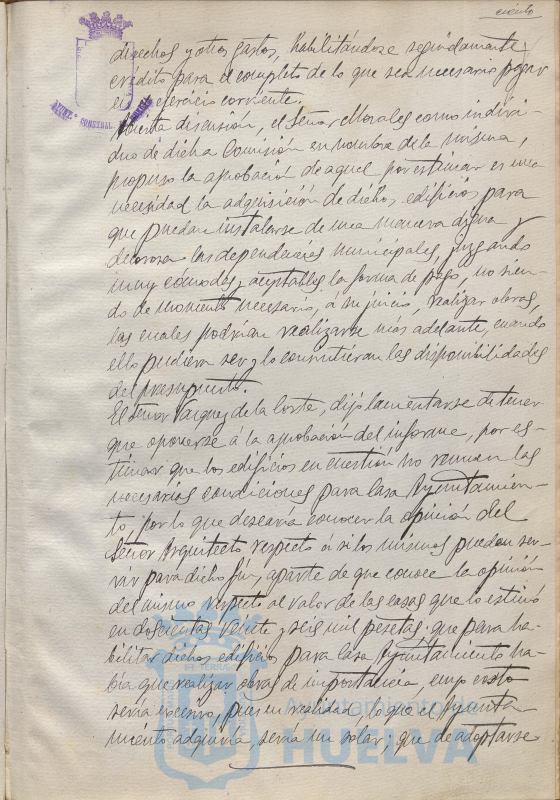 ciento
derechos y otros gastos, habilitándose seguidamente
crédito para el completo de lo que sea necesario pagar
en el ejercicio corriente.
Abierta discusión, el Señor Morales como indivi-
duo de dicha Comisión en nombre de la misma,
propuso la aprobación de aquel por estimar es una
necesidad la adquisición de dichos edificios para
que puedan instalarse de una manera digna y
decorosa las dependencias municipales, juzgando
muy cómodas y aceptables la forma de pago, no sien-
do de momento necesario, á su juicio, realizar obras,
las cuales podrían realizarse más adelante, cuando
ello pudiera ser y lo consintieran las disponibilidades
del presupuesto.
El Señor Vazquez de la Corte, dijo lamentarse de tener
que oponerse á la aprobación del informe, por es-
timar que los edificios en cuestión no reunen las
necesarias condiciones para Casa Ayuntamien-
to; por lo que desearía conocer la opinión del
Señor Arquitecto respecto á si los mismos pueden ser-
vir para dicho fin, aparte de que conoce la opinión
del mismo respecto al valor de las casas que lo estimó
en doscientas veinte y seis mil pesetas: que para ha-
bilitar dichos edificios para Casa Ayuntamiento ha-
bía que realizar obras de importancia, cuyo costo
sería excesivo, pues en realidad, lo que el Ayunta-
miento adquiría, sería un solar; que de adoptarse
Ayuntamiento de
HUELVA